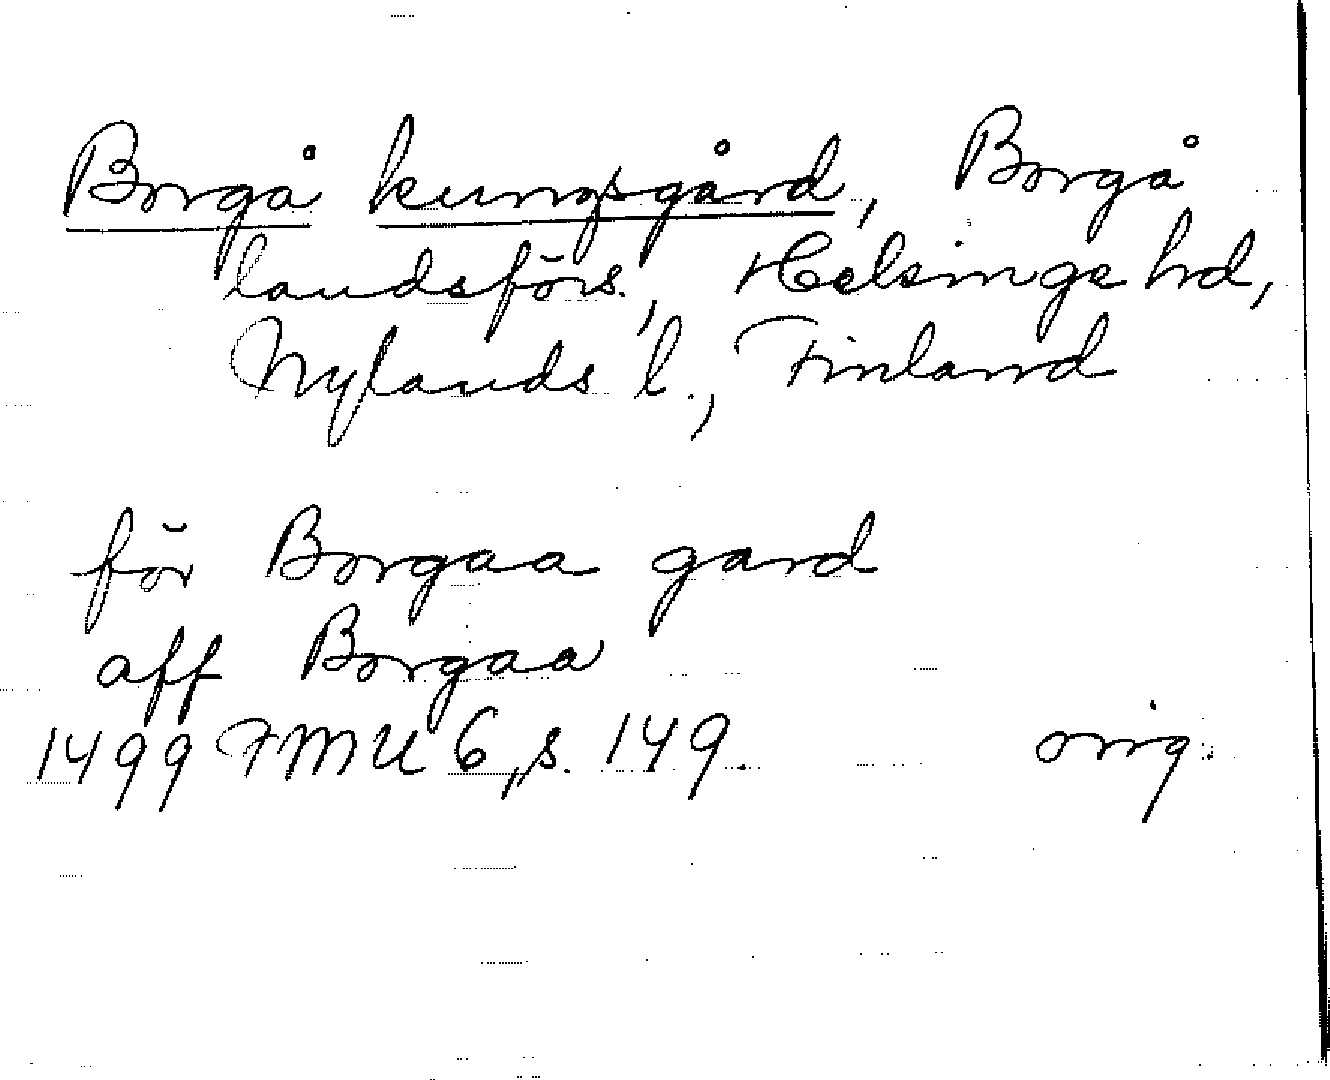 Borgå kungsgård, Borgå
landsförs., Helsinge hd,
Nylands l., Finland
för Borgaa gard
aff Borgaa
1499 FMU 6, s. 149. orig.